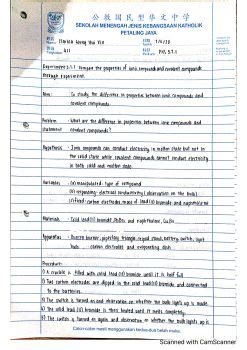 公教國民型華文中学
SEKOLAH MENENGAH JENIS KEBANGSAAN KATHOLIK
PETALING JAYA
Experiment 5.1: Compare the properties of ionic compound and covalent compounds
through experiment.
Aim : To study the difference in properties between ionic compounds and
covalent compounds.
Problem : What are the difference in properties between ionic compounds and
statement covalent compounds?
Hypothesis : Ionic compounds can conduct electricity in molten state but not in
the solid state while covalent compounds cannot conduct electricity
in both solid and molten state.
Variables : (a) manipulated: type of compound
(b) responding: electrical conductivity (observation on the bulb)
(c) fixed: carbon electrodes, mass of lead(II) bromide and naphthalene
Materials : Solid lead(II) bromide, PbBr₂ and naphthalene, C₁₀H₈
Apparatus : Bunsen burner, pipeclay triangle, tripod stand, battery, switch, light
bulb, carbon electrodes and evaporating dish
Procedure:
1) A crucible is filled with solid lead (II) bromide until it is half full
2) Two carbon electrodes are dipped in the solid lead(II) bromide and connected
to
3) The switch is turned on and observation on whether the bulb lights up is made.
4) The solid lead (II) bromide is then heated until it melts completely.
5) The switch is turned on again and observation on whether the bulb lights up
Calon-calon mesti menggunakan kedua-dua belah muka.
Scanned with CamScanner